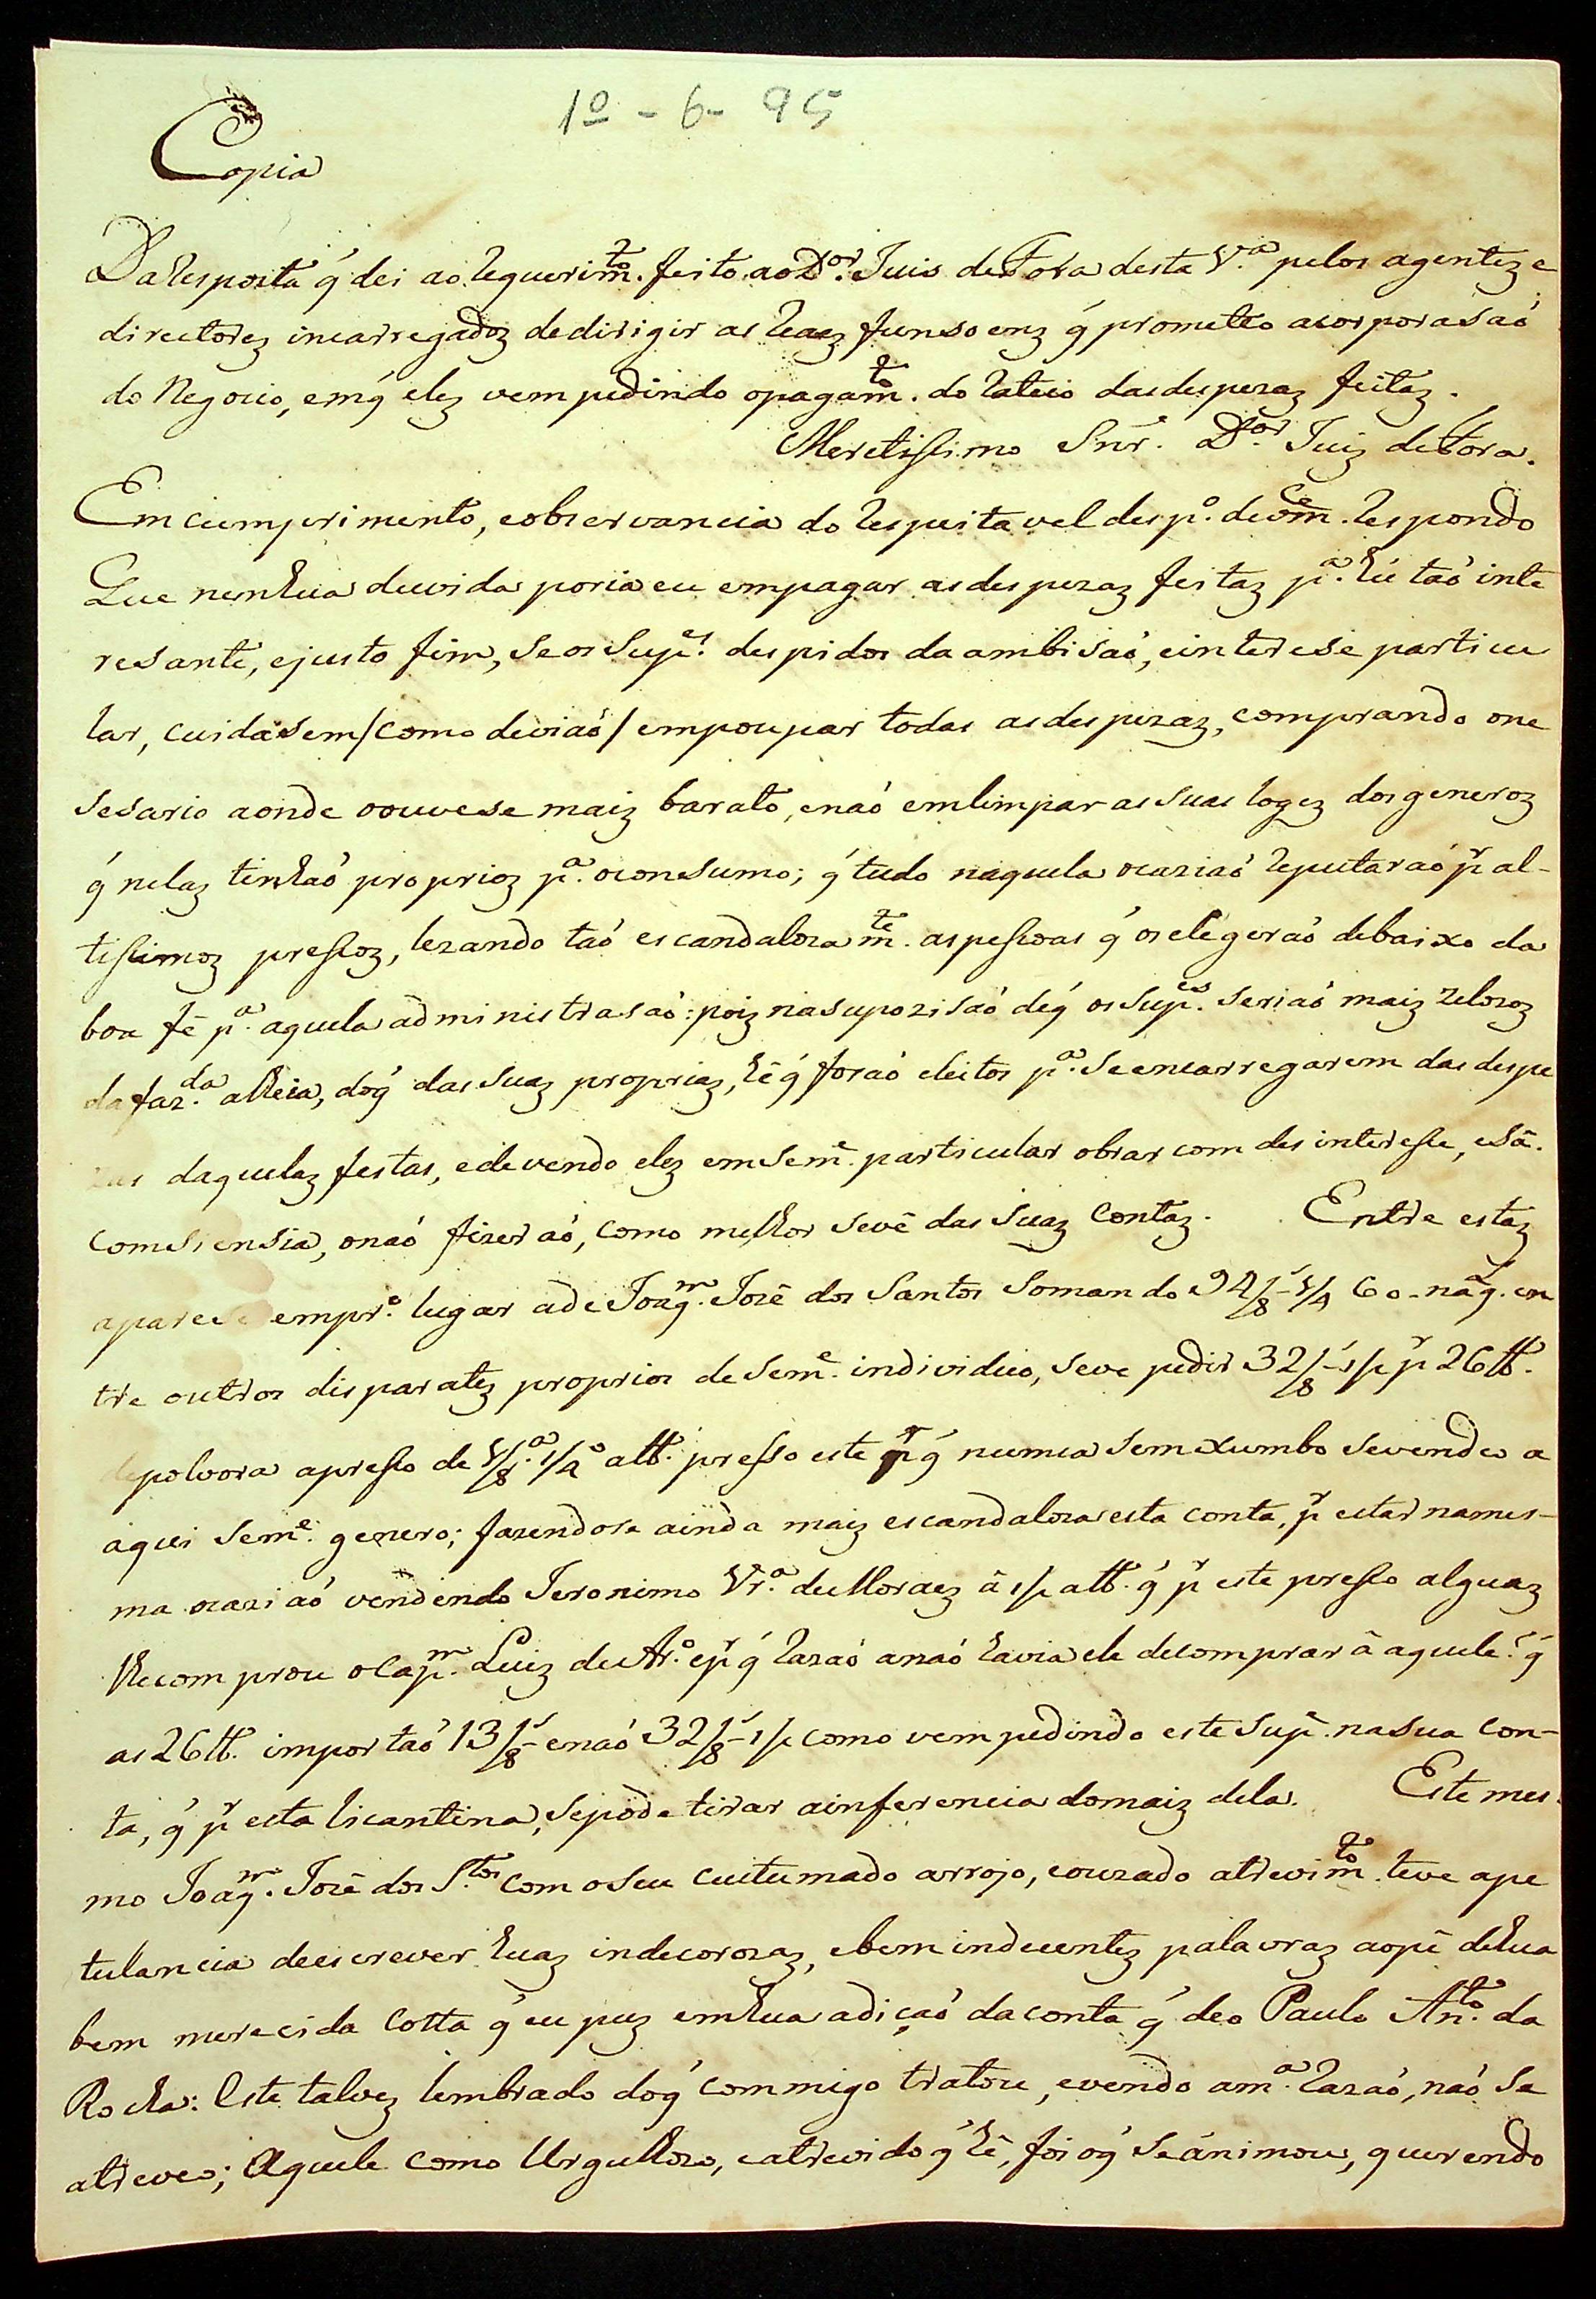 1º - 6 - 95
Copia
Da Resposta q́ dei ao Requerim.to feito ao D.or Juis de Fora desta V.a pelos agentez e
directorez incarregadoz de dirigir as Reaez funsoenz q́ prometeo a corporasaó
do Negocio, em q́ elez vem pedindo o pagam.to do Rateio das despezaz feitaz.
Meretissimo Snr. D.or Juiz de Fora.
Em cumprimento, e observancia do Respeitavel desp.o de vm.ce Respondo
Que nenhua duvida poria eu em pagar as despezaz feitaz p.a hú taó inte
resante, e justo fim, se os Sup.es despidos da ambisaó, e interese particu
lar, cuidasem / como deviaó / em poupar todas as despezaz, comprando o ne
sesario aonde oouvese maiz barato, e naó em limpar as suas logez dos generoz
q́ nelaz tinhaó proprioz p.a o consumo; q́ tudo naquela ocaziaó Reputaraó p.r al-
tissimoz pressoz, lezando taó escandaloza m.te as pessoas q́ os elegeraó debaixo da
boa fé p.a aquela administrasaó: poiz na supozisaó de q́ os Sup.es seriaó maiz zelozoz
da faz.da alheia, do q́ das suaz propriaz, hé q́ foraó eleitos p.a se encarregarem das despe
zas daquelaz festas, e devendo elez em sem.e particular obrar com desinteresse, e sã.
comsiensia, o naó fizeraó, como melhor se vê das suaz contaz. Entre estaz
aparese em pr.o lugar a de Joaq.m José dos Santos somando 94/8.s 1/4 6 o. na q.l en
tre outros disparatez proprios de sem.e individuo, se ve pedir 32/8.s 1/2 p.r 26 ℔.
de polvora a presso de 1/8.a 1/4 a ℔. presso este p.r q́ numca sem xumbo se vendeo a
aqui sem.e genero; fazendose ainda maiz escandaloza esta conta, p.r estar na mes-
ma ocaziaó vendendo Jeronimo Vr.a de Moraez â 1/2 a ℔. q́ p.r este presso alguaz
lhe comprou o Cap.m Luiz de Ar.o e p.r q́ Razaó a naó havia ele de comprar â aquele? q́
as 26 ℔. importaó 13/8.s e naó 32/8.s 1/2 como vem pedindo este Sup.e na sua con-
ta, q́ p.r esta licantina, se pode tirar a inferencia do maiz dela. Este mes-
mo Joaq.m José dos S.tos com o seu custumado arrojo, e ouzado atrevim.to teve a pe
tulancia de escrever huaz indecorozaz, e bem indecentez palavraz ao pé de hua
bem merecida Cotta q́ eu puz em hua adiçaó da conta q́ deo Paulo Ant.o da
Rocha: Este talvez lembrado do q́ commigo tratou, e vendo a m.a Razaó, naó se
atreveo; Aquele como Urgulhozo, e atrevido q́ hé, foi o q́ se animou, querendo